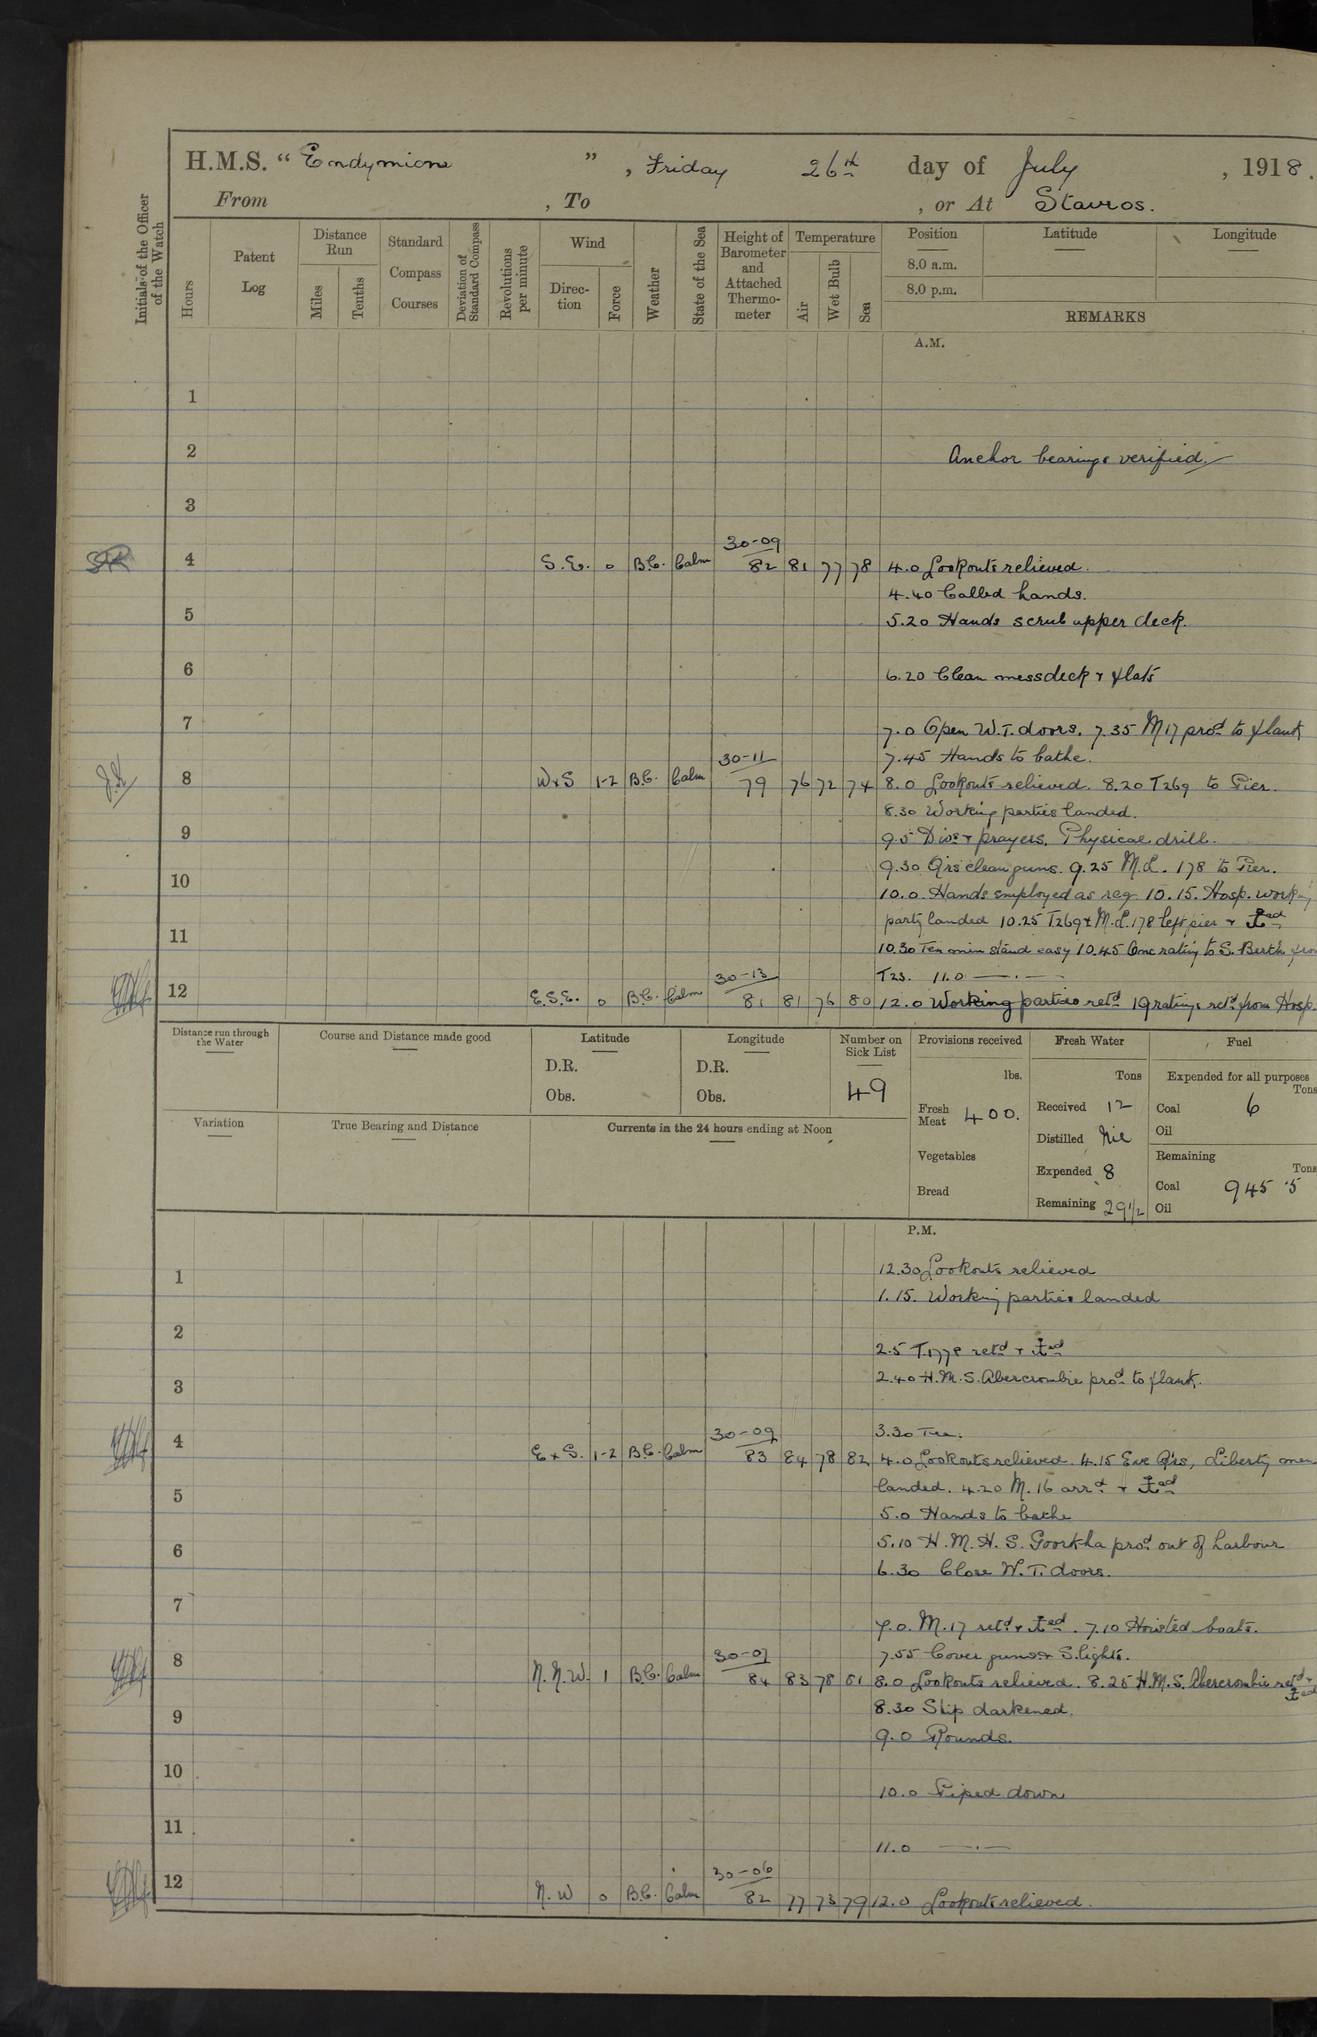 H.M.S. "Endymion", Friday 26th day of July, 1918.
From , To , or At Stavros.
Initials of the Officer of the Watch
Hours
Patent Log
Distance Run
Miles
Tenths
Standard Compass Courses
Deviation of Standard Compass
Revolutions per minute
Wind
Direction
Force
Weather
State of the Sea
Height of Barometer and Attached Thermometer
Temperature
Air
Wet Bulb
Sea
Position
Latitude
Longitude
8.0 a.m.
8.0 p.m.
REMARKS
A.M.
1
2 Anchor bearings verified.
3
30-09
4 S.E. 0 B.C. Calm 82 81 77 78 4.0 Lookouts relieved.
4.40 Called hands.
5 5.20 Hands scrub upper deck.
6 6.20 Clean messdeck & flats
7 7.0 Open W.T. doors. 7.35 M17 procd to flank
30-11 7.45 Hands to bathe.
8 W x S 1-2 B.C. Calm 79 76 72 74 8.0 Lookouts relieved. 8.20 T269 to Pier.
8.30 Working parties landed.
9 9.5 Divs & prayers. Physical drill.
9.30 Qrs clean guns. 9.25 M.L. 178 to Pier.
10 10.0 Hands employed as req 10.15. Hosp. working
party landed 10.25 T269 & M.L. 178 left pier & ⚓ed
11 10.30 Ten min stand easy 10.45 One rating to S. Berth from
30-13 T23. 11.0 —.—
12 E.S.E. 0 B.C. Calm 81 81 76 80 12.0 Working parties retd 19 ratings retd from Hosp.
Distance run through the Water
Course and Distance made good
Latitude
D.R.
Obs.
Longitude
D.R.
Obs.
Number on Sick List
49
Provisions received
lbs.
Fresh Meat 400.
Vegetables
Bread
Fresh Water
Tons
Received 12
Distilled Nil
Expended 8
Remaining 29 1/2
Fuel
Expended for all purposes
Tons
Coal 6
Oil
Remaining
Tons
Coal 945.5
Oil
Variation
True Bearing and Distance
Currents in the 24 hours ending at Noon
P.M.
12.30 Lookouts relieved
1 1.15. Working parties landed
2 2.5 T.1778 retd & ⚓ed
2.40 H.M.S. Abercrombie procd to flank.
3
30-09 3.30 Tea.
4 E x S. 1-2 B.C. Calm 83 84 78 82 4.0 Lookouts relieved. 4.15 Eve Qrs, Liberty men
landed. 4.20 M.16 arrd & ⚓ed
5 5.0 Hands to bathe
5.10 H.M.H.S. Goorkha procd out of harbour
6 6.30 Close W.T. doors.
7 7.0. M.17 retd & ⚓ed. 7.10 Hoisted boats.
30-07 7.55 Cover guns & S.lights.
8 N.N.W. 1 B.C. Calm 84 83 78 81 8.0 Lookouts relieved. 8.25 H.M.S. Abercrombie retd & ⚓ed
8.30 Ship darkened.
9 9.0 Rounds.
10 10.0 Piped down
11 11.0 —.—
30-06
12 N.W 0 B.C. Calm 82 77 73 79 12.0 Lookouts relieved.